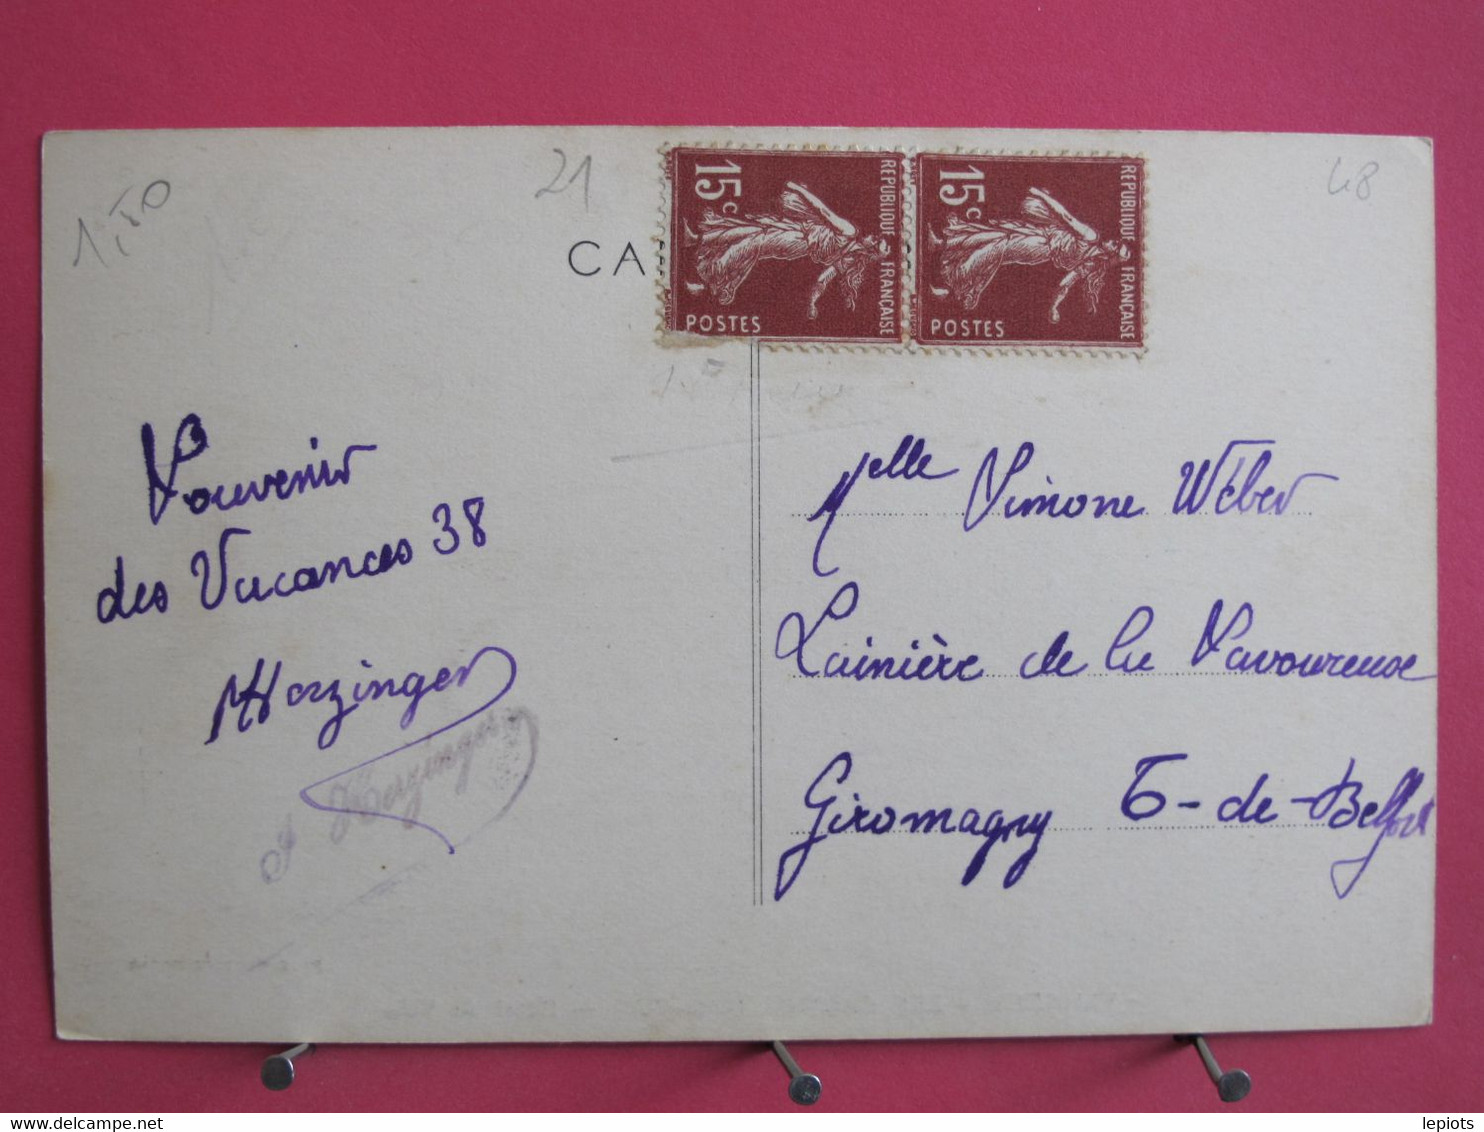 1,50
21
48
CA
15c
REPUBLIQUE FRANÇAISE
POSTES
15c
REPUBLIQUE FRANÇAISE
POSTES
Souvenir
des Vacances 38
Herzinger
Herzinger
Melle Simone Wéber
Lainière de la Savoureuse
Giromagny T-de-Belfort
delcampe.net
lepiots